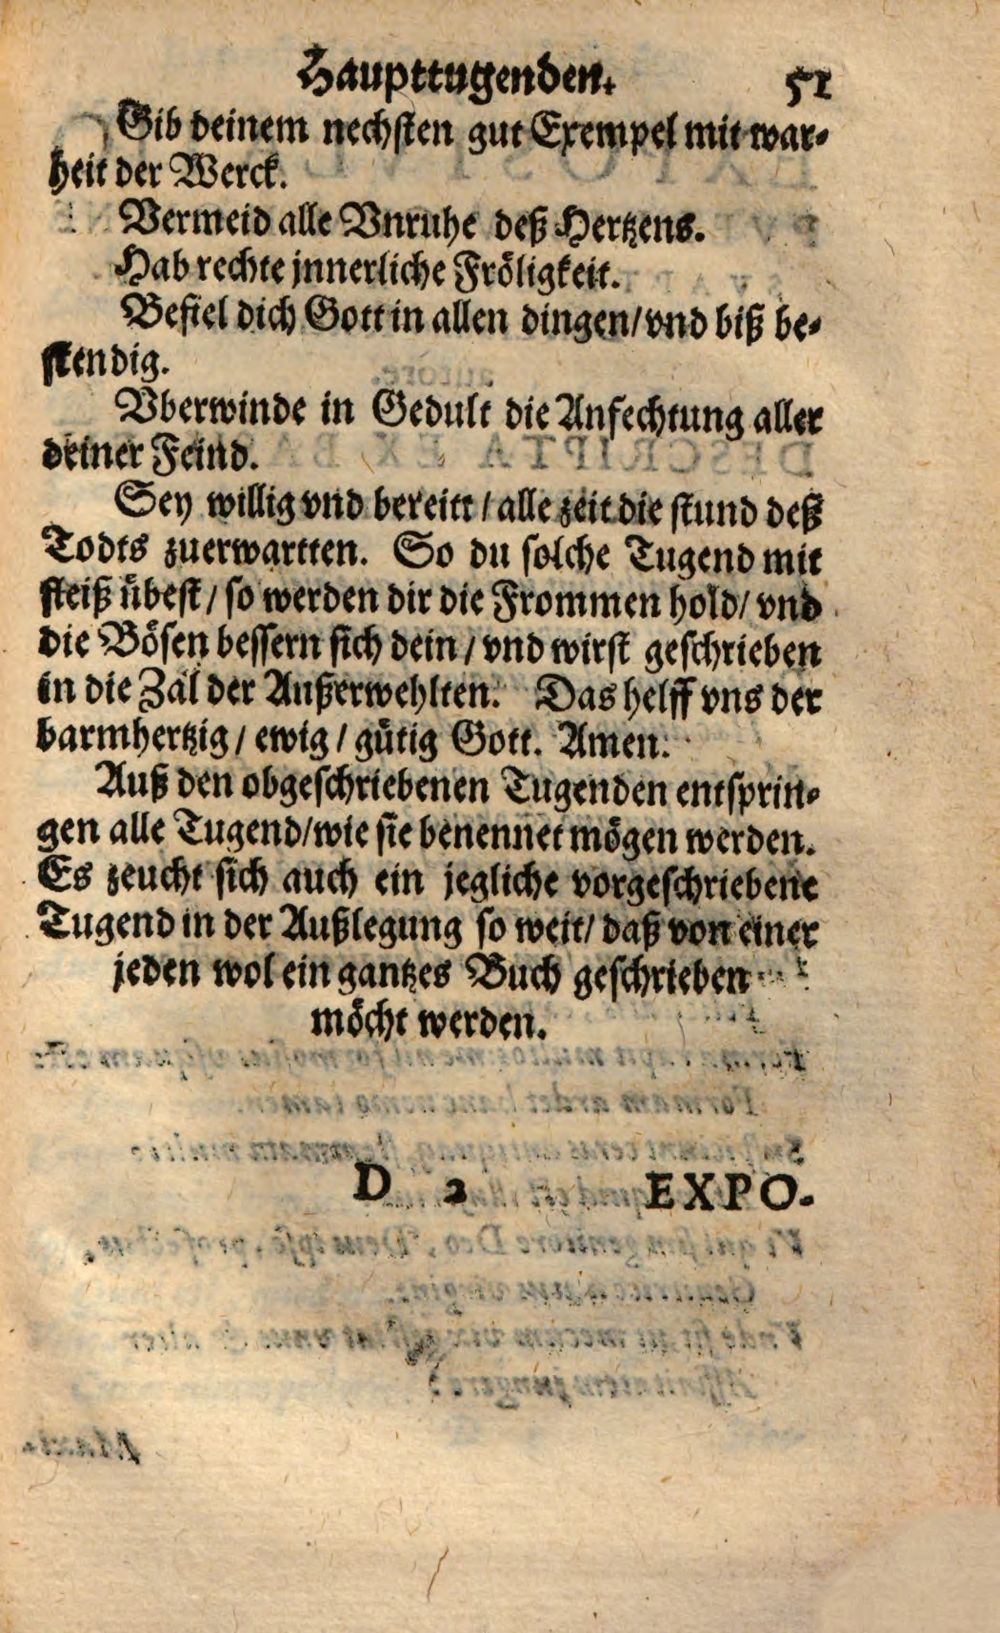 Haupttugenden. 51
Gib deinem nechsten gut Exempel mit war-
heit der Werck.
Vermeid alle Vnruhe deß Hertzens.
Hab rechte jnnerliche Fröligkeit.
Befiel dich Gott in allen dingen/ vnd biß be-
stendig.
Vberwinde in Gedult die Anfechtung aller
deiner Feind.
Sey willig vnd bereitt / alle zeit die stund deß
Todts zuerwartten. So du solche Tugend mit
fleiß übest / so werden dir die Frommen hold/ vnd
die Bösen bessern sich dein / vnd wirst geschrieben
in die Zal der Außerwehlten. Das helff vns der
barmhertzig / ewig / gütig Gott. Amen.
Auß den obgeschriebenen Tugenden entsprin-
gen alle Tugend/ wie sie benennet mögen werden.
Es zeucht sich auch ein jegliche vorgeschriebene
Tugend in der Außlegung so weit/ daß von einer
jeden wol ein gantzes Buch geschrieben
möcht werden.
D 2 EXPO-